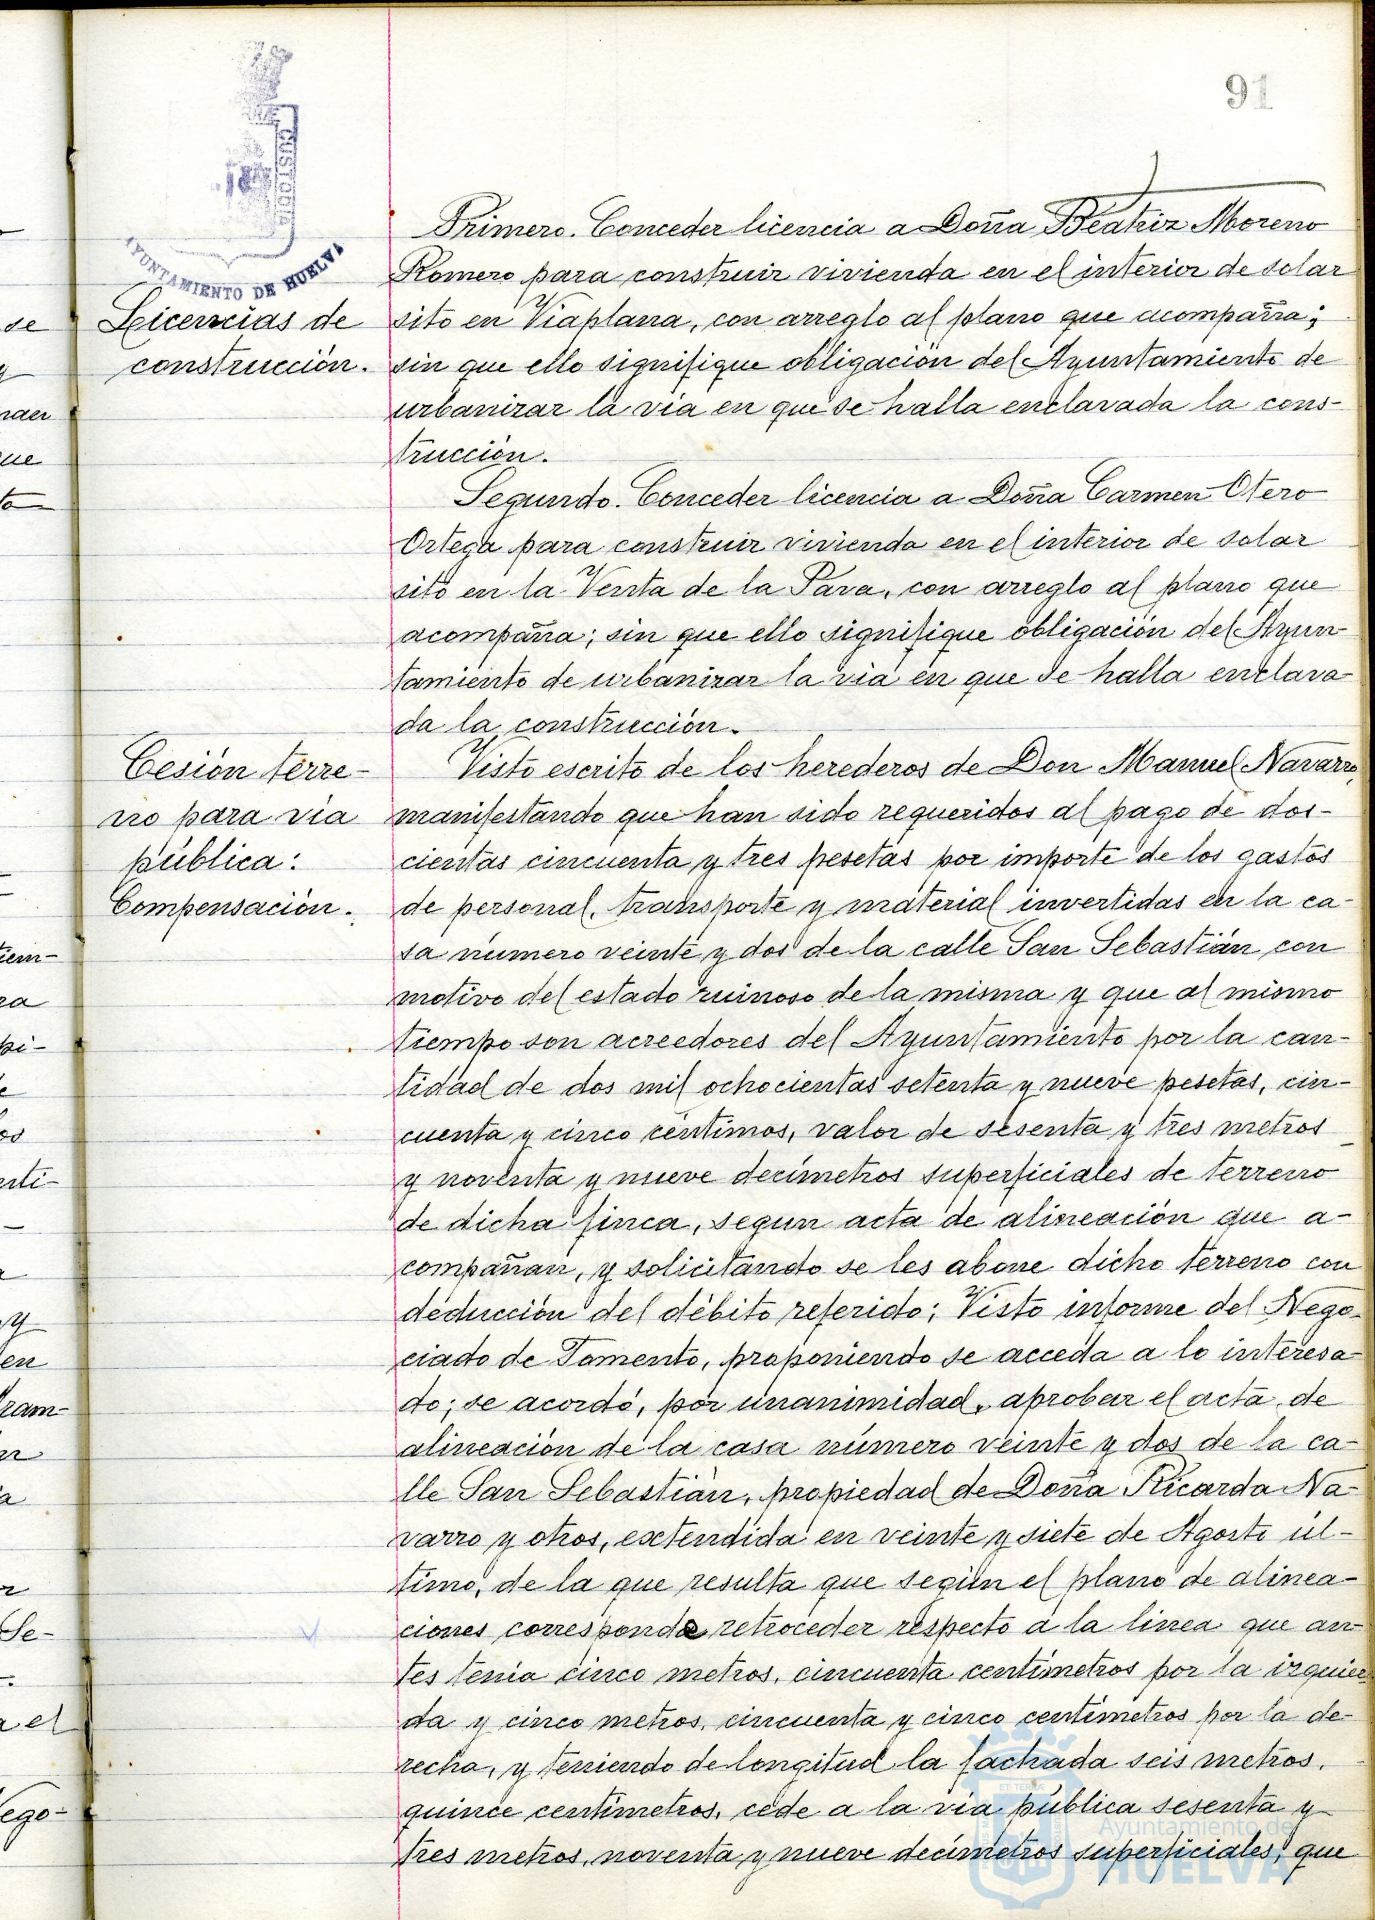 91
CUSTODIT
AYUNTAMIENTO DE HUELVA
Licencias de
construcción.
Primero. Conceder licencia a Doña Beatriz Moreno
Romero para construir vivienda en el interior de solar
sito en Viaplana, con arreglo al plano que acompaña;
sin que ello signifique obligación del Ayuntamiento de
urbanizar la via en que se halla enclavada la cons-
trucción.
Segundo. Conceder licencia a Doña Carmen Otero
Ortega para construir vivienda en el interior de solar
sito en la Venta de la Pava, con arreglo al plano que
acompaña; sin que ello signifique obligación del Ayun-
tamiento de urbanizar la via en que se halla enclava-
da la construcción.
Cesión terre-
no para via
pública:
Compensación.
Visto escrito de los herederos de Don Manuel Navarro,
manifestando que han sido requeridos al pago de dos-
cientas cincuenta y tres pesetas por importe de los gastos
de personal, transporte y material invertidas en la ca-
sa número veinte y dos de la calle San Sebastián con
motivo del estado ruinoso de la misma y que al mismo
tiempo son acreedores del Ayuntamiento por la can-
tidad de dos mil ochocientas setenta y nueve pesetas, cin-
cuenta y cinco céntimos, valor de sesenta y tres metros
y noventa y nueve decímetros superficiales de terreno
de dicha finca, segun acta de alineación que a-
compañan, y solicitando se les abone dicho terreno con
deducción del débito referido; Visto informe del Nego-
ciado de Fomento, proponiendo se acceda a lo interesa-
do; se acordó, por unanimidad, aprobar el acta de
alineación de la casa número veinte y dos de la ca-
lle San Sebastián, propiedad de Doña Ricarda Na-
varro y otros, extendida en veinte y siete de Agosto úl-
timo, de la que resulta que según el plano de alinea-
ciones corresponde retroceder respecto a la linea que an-
tes tenia cinco metros, cincuenta centímetros por la izquier-
da y cinco metros, cincuenta y cinco centímetros por la de-
recha, y teniendo de longitud la fachada seis metros,
quince centímetros, cede a la via pública sesenta y
tres metros, noventa y nueve decímetros superficiales, que
Ayuntamiento de
HUELVA